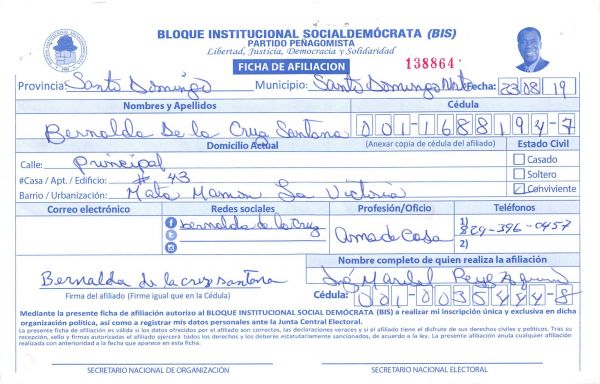 BLOQUE INSTITUCIONAL SOCIALDEMÓCRATA (BIS)
PARTIDO PEÑAGOMISTA
Libertad, Justicia, Democracia y Solidaridad
FICHA DE AFILIACION
138864
Provincia: Santo Domingo Municipio: Santo Domingo Nte Fecha: 23 08 19
Nombres y Apellidos Cédula
Bernalda De la Cruz Santana 001-1688194-7
Domicilio Actual (Anexar copia de cédula del afiliado) Estado Civil
Calle: Principal Casado
#Casa / Apt. / Edificio: # 43 Soltero
Barrio / Urbanización: Mata Mamon La Victoria Conviviente
Correo electrónico Redes sociales Profesión/Oficio Teléfonos
bernalda de la Cruz Ama de Casa 1) 829-396-0457
2)
Nombre completo de quien realiza la afiliación
Bernalda de la cruz santana Maribel
Firma del afiliado (Firme igual que en la Cédula) Cédula: 001-0035444-8
Mediante la presente ficha de afiliación autorizo al BLOQUE INSTITUCIONAL SOCIAL DEMÓCRATA (BIS) a realizar mi inscripción única y exclusiva en dicha
organización política, así como a registrar mis datos personales ante la Junta Central Electoral.
La presente ficha de afiliación es válida si los datos ofrecidos por el afiliado son correctos, las declaraciones veraces y si el afiliado tiene el disfrute de sus derechos civiles y políticos. Tras su
recepción, sello y firmas autorizadas el afiliado ejercerá todos los derechos y los deberes estatutariamente sancionados, de acuerdo a la ley. La presente afiliación anula cualquier afiliación
realizada con anterioridad a la fecha que aparece en esta ficha.
SECRETARIO NACIONAL DE ORGANIZACIÓN SECRETARIO NACIONAL ELECTORAL